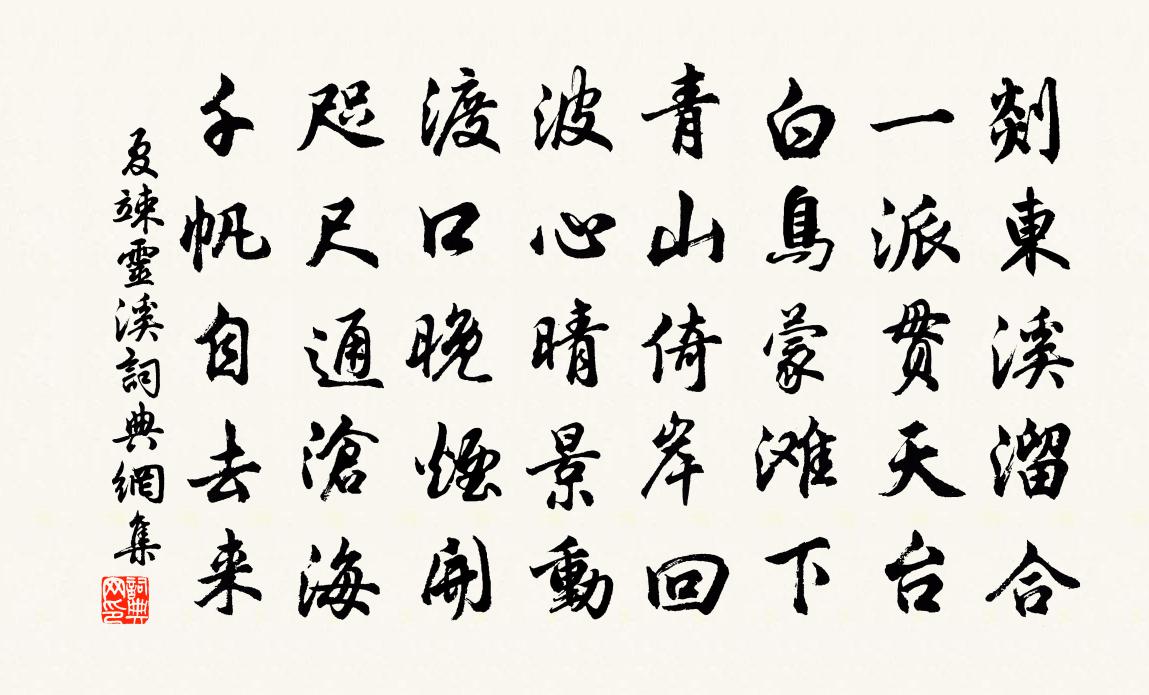 剡東溪溜合
一派贯天台
白鳥蒙滩下
青山倚岸回
波心晴景動
渡口晚煙開
咫尺通滄海
千帆自去来
夏竦靈溪詞典網集
詞典网印